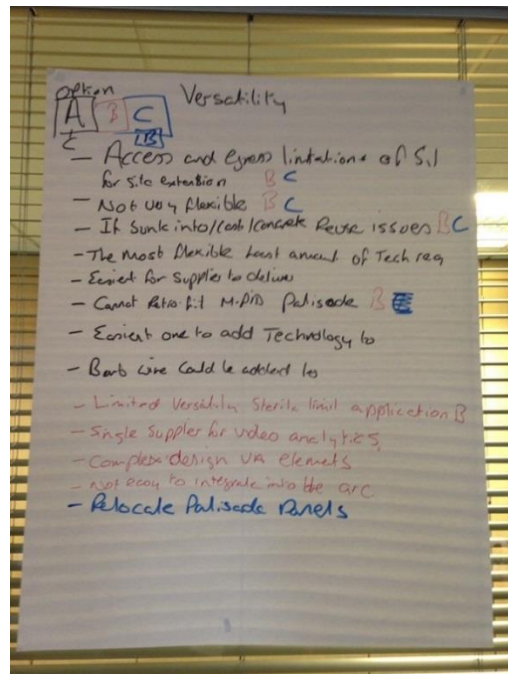 option Versatility
A B C
C B
- Access and egress limitations of
for site extension B C
- Not very flexible B C
- If sunk into/cast/concrete Reuse issues B C
- The most flexible least amount of Tech req
- Easiest for supplier to deliver
- Cannot Retro-fit Palisade B
- Easiest one to add Technology to
- Barb wire could be added to
- Limited Versatility Sterile limit application B
- Single Supplier for video analytics
- Complex design VA elements
- Not easy to integrate into the arc
- Relocate Palisade Panels